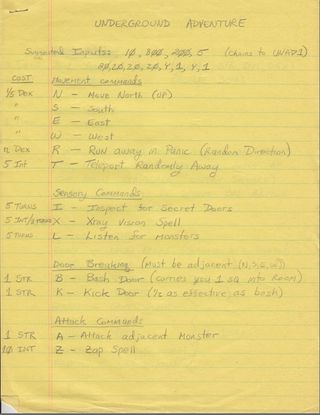 UNDERGROUND ADVENTURE
Suggested Inputs: 10, 300, 200, 5 (Chains to UNAD1)
20, 20, 20, Y, 1, Y, 1
COST MOVEMENT COMMANDS
1/5 Dex N - Move North (UP)
" S - South
" E - East
" W - West
R - Run away in Panic (Random Direction)
5 Int T - Teleport Randomly Away
Sensory Commands:
5 Turns I - Inspect for Secret Doors
5 INT/ X - Xray Vision Spell
5 Turns L - Listen for Monsters
Door Breaking (Must be adjacent (N,S,E,W))
1 STR B - Bash Door (carries you 1 sq into Room)
1 STR K - Kick Door (1/2 as effective as bash)
Attack Commands:
1 STR A - Attack adjacent Monster
10 INT Z - Zap Spell